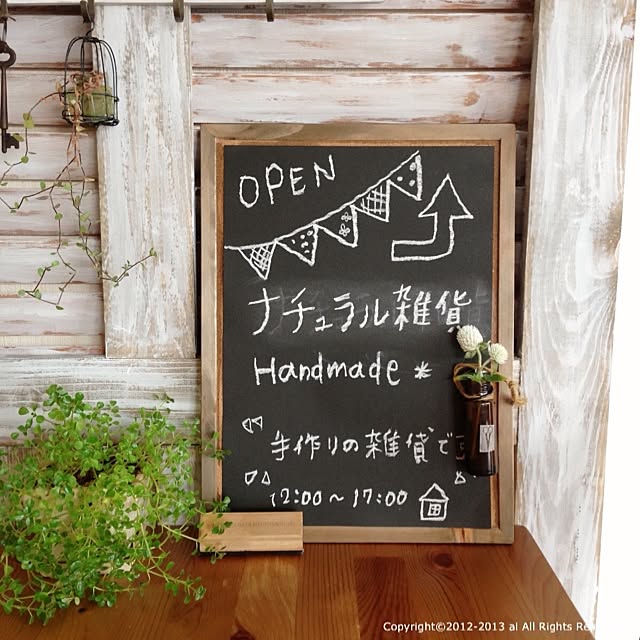 OPEN
ナチュラル雑貨
Handmade *
手作りの雑貨で
12:00～17:00
Copyright©2012-2013 al All Rights Re